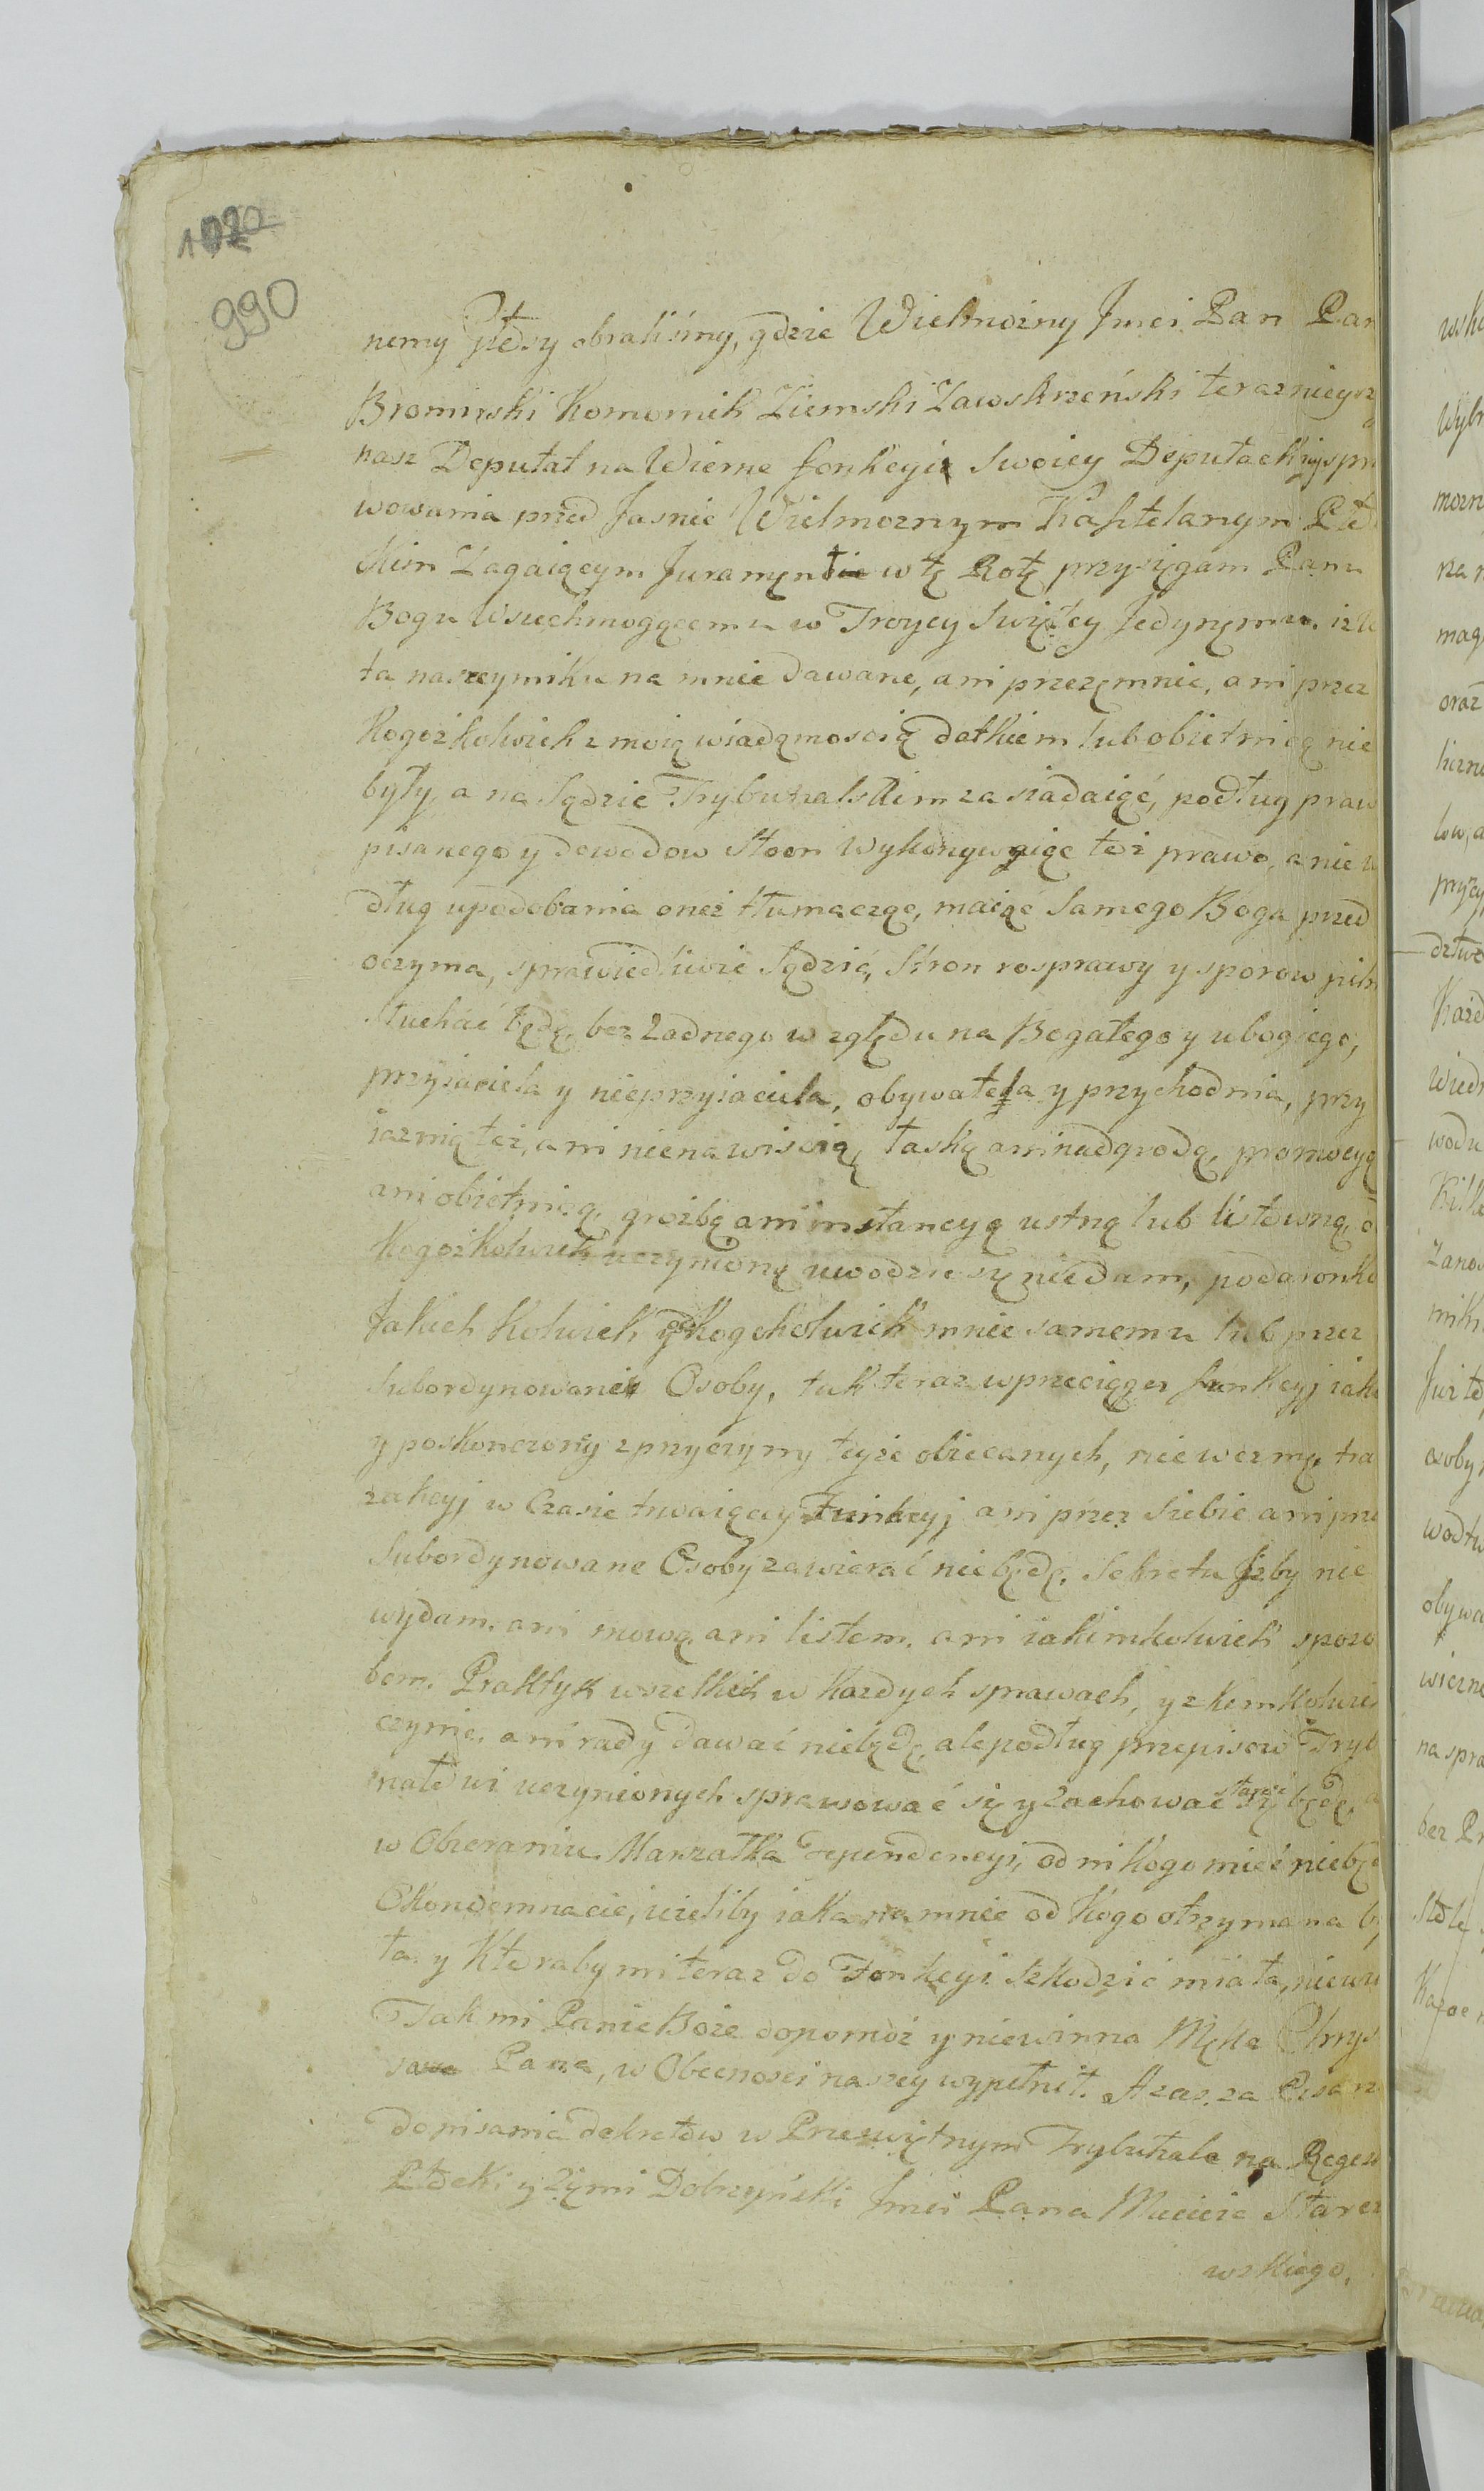 1020
990
nemy obraliśmy, gdzie Wielmożny Jmci Pan Pan
Bromirski Komornik Ziemski Zawskrzeński teraznieysz
nasz Deputat na Wierne fonkcyi Swoiey Deputackiy spra
wowania przed Jasnie Wielmoznym Kasztelanym Płc
kim Zagaiącym Juramęnt w tę Rotę przysięgam Panu
Bogu Wszechmogącemu w Troycy Swiętey Jedynęmu. iż Wo
ta naszeymiku na mnie dawane, ani przezęmnie, ani przez
kogożkolwiek z moią wiadąmoscią datkiem lub obietnicą nie
były, a na Sądzie Trybunalskim zasiadaiąć, podług praw
pisanego y dowodow Stron Wykonywaiąc też prawo, a nie w
dług upodobania oneż tłumacząc, maiąc Samego Boga przed
oczyma, sprawiedliwie Sądzić, Stron rosprawy y sporow piln
słuchać będę, bez Zadnego względu na Bogatego y ubogiego,
przyiaciela y nieprzyiaciela, obywatela y przychodnia, przy
iaznią też, ani nienawiscią, łaską ani nadgrodą, promocyą
ani obietnicą, grozbą ani instancyą ustną lub listowną, o
kogożkolwiek uczynioną uwodzic się niedam, podaronko
Jakich kolwiek od kogokolwiek mnie samemu lub przez
Subordynowane Osoby, tak teraz wprzeciągu funkcyj iako
y poskonczony z przyczyny teyże obiecanych, nie wezmę, tra
zakcyj w Czasie trwaiącey Funkcyj ani przez Siebie ani prze
Subordynowane Osoby zawierać niebędę, Sekretu Jzby nie
wydam. ani mową ani listem, ani iakimkolwiek sposo
bem. Praktyk wszelkich w kazdych sprawach, y z kemkolwiek
czynic, ani rady dawać niebędę, ale podług przepisow Tryb
nałowi uczynionych sprawować się y Zachować starać się będę, a
w Obieraniu Marszałka Dependencyi, od nikogo mieć niebęd
O Kondemnacie, ieżeliby iaka na mnie od kogo otrzymana by
ła y ktoraby mi teraz do Fonkcyi szkodzić miała, niewi
Tak mi Panie Boże dopomoż y niewinna Męka Chrys
sowa Pana, w Obecnosci naszey wypełnił. A zas za Pisarz
do pisania dekretow w Przeswiętnym Trybunale na Regest
Płocki y Zięmi Dobrzyński Jmci Pana Macieia Starcz
wskiego,